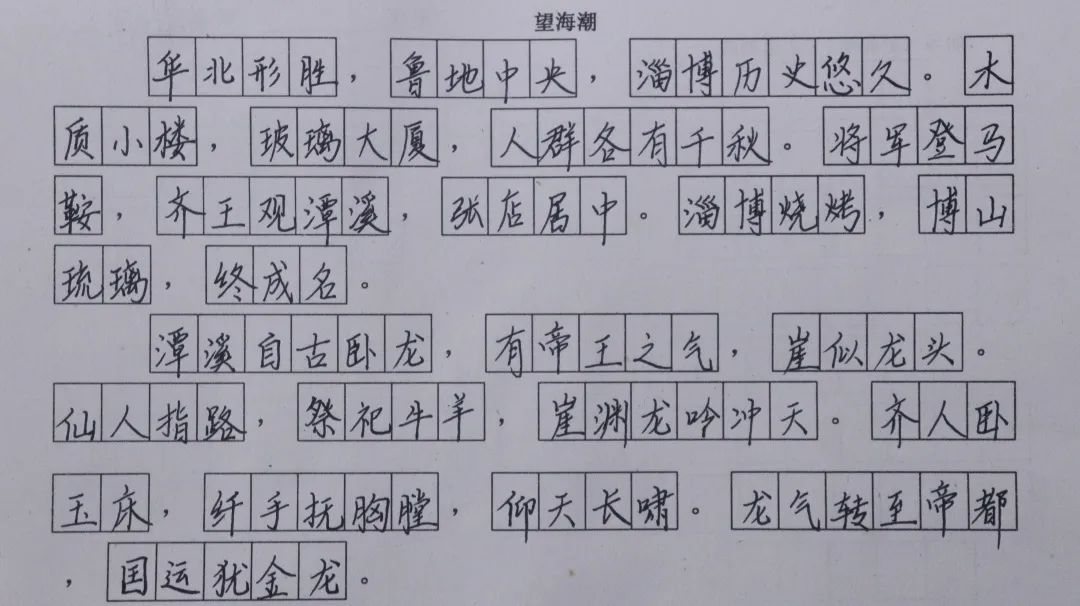 望海潮
华北形胜，鲁地中央，淄博历史悠久。木
质小楼，玻璃大厦，人群各有千秋。将军登马
鞍，齐王观潭溪，张店居中。淄博烧烤，博山
琉璃，终成名。
潭溪自古卧龙，有帝王之气，崖似龙头。
仙人指路，祭祀牛羊，崖渊龙吟冲天。齐人卧
玉床，纤手抚胸膛，仰天长啸。龙气转至帝都
，国运犹金龙。